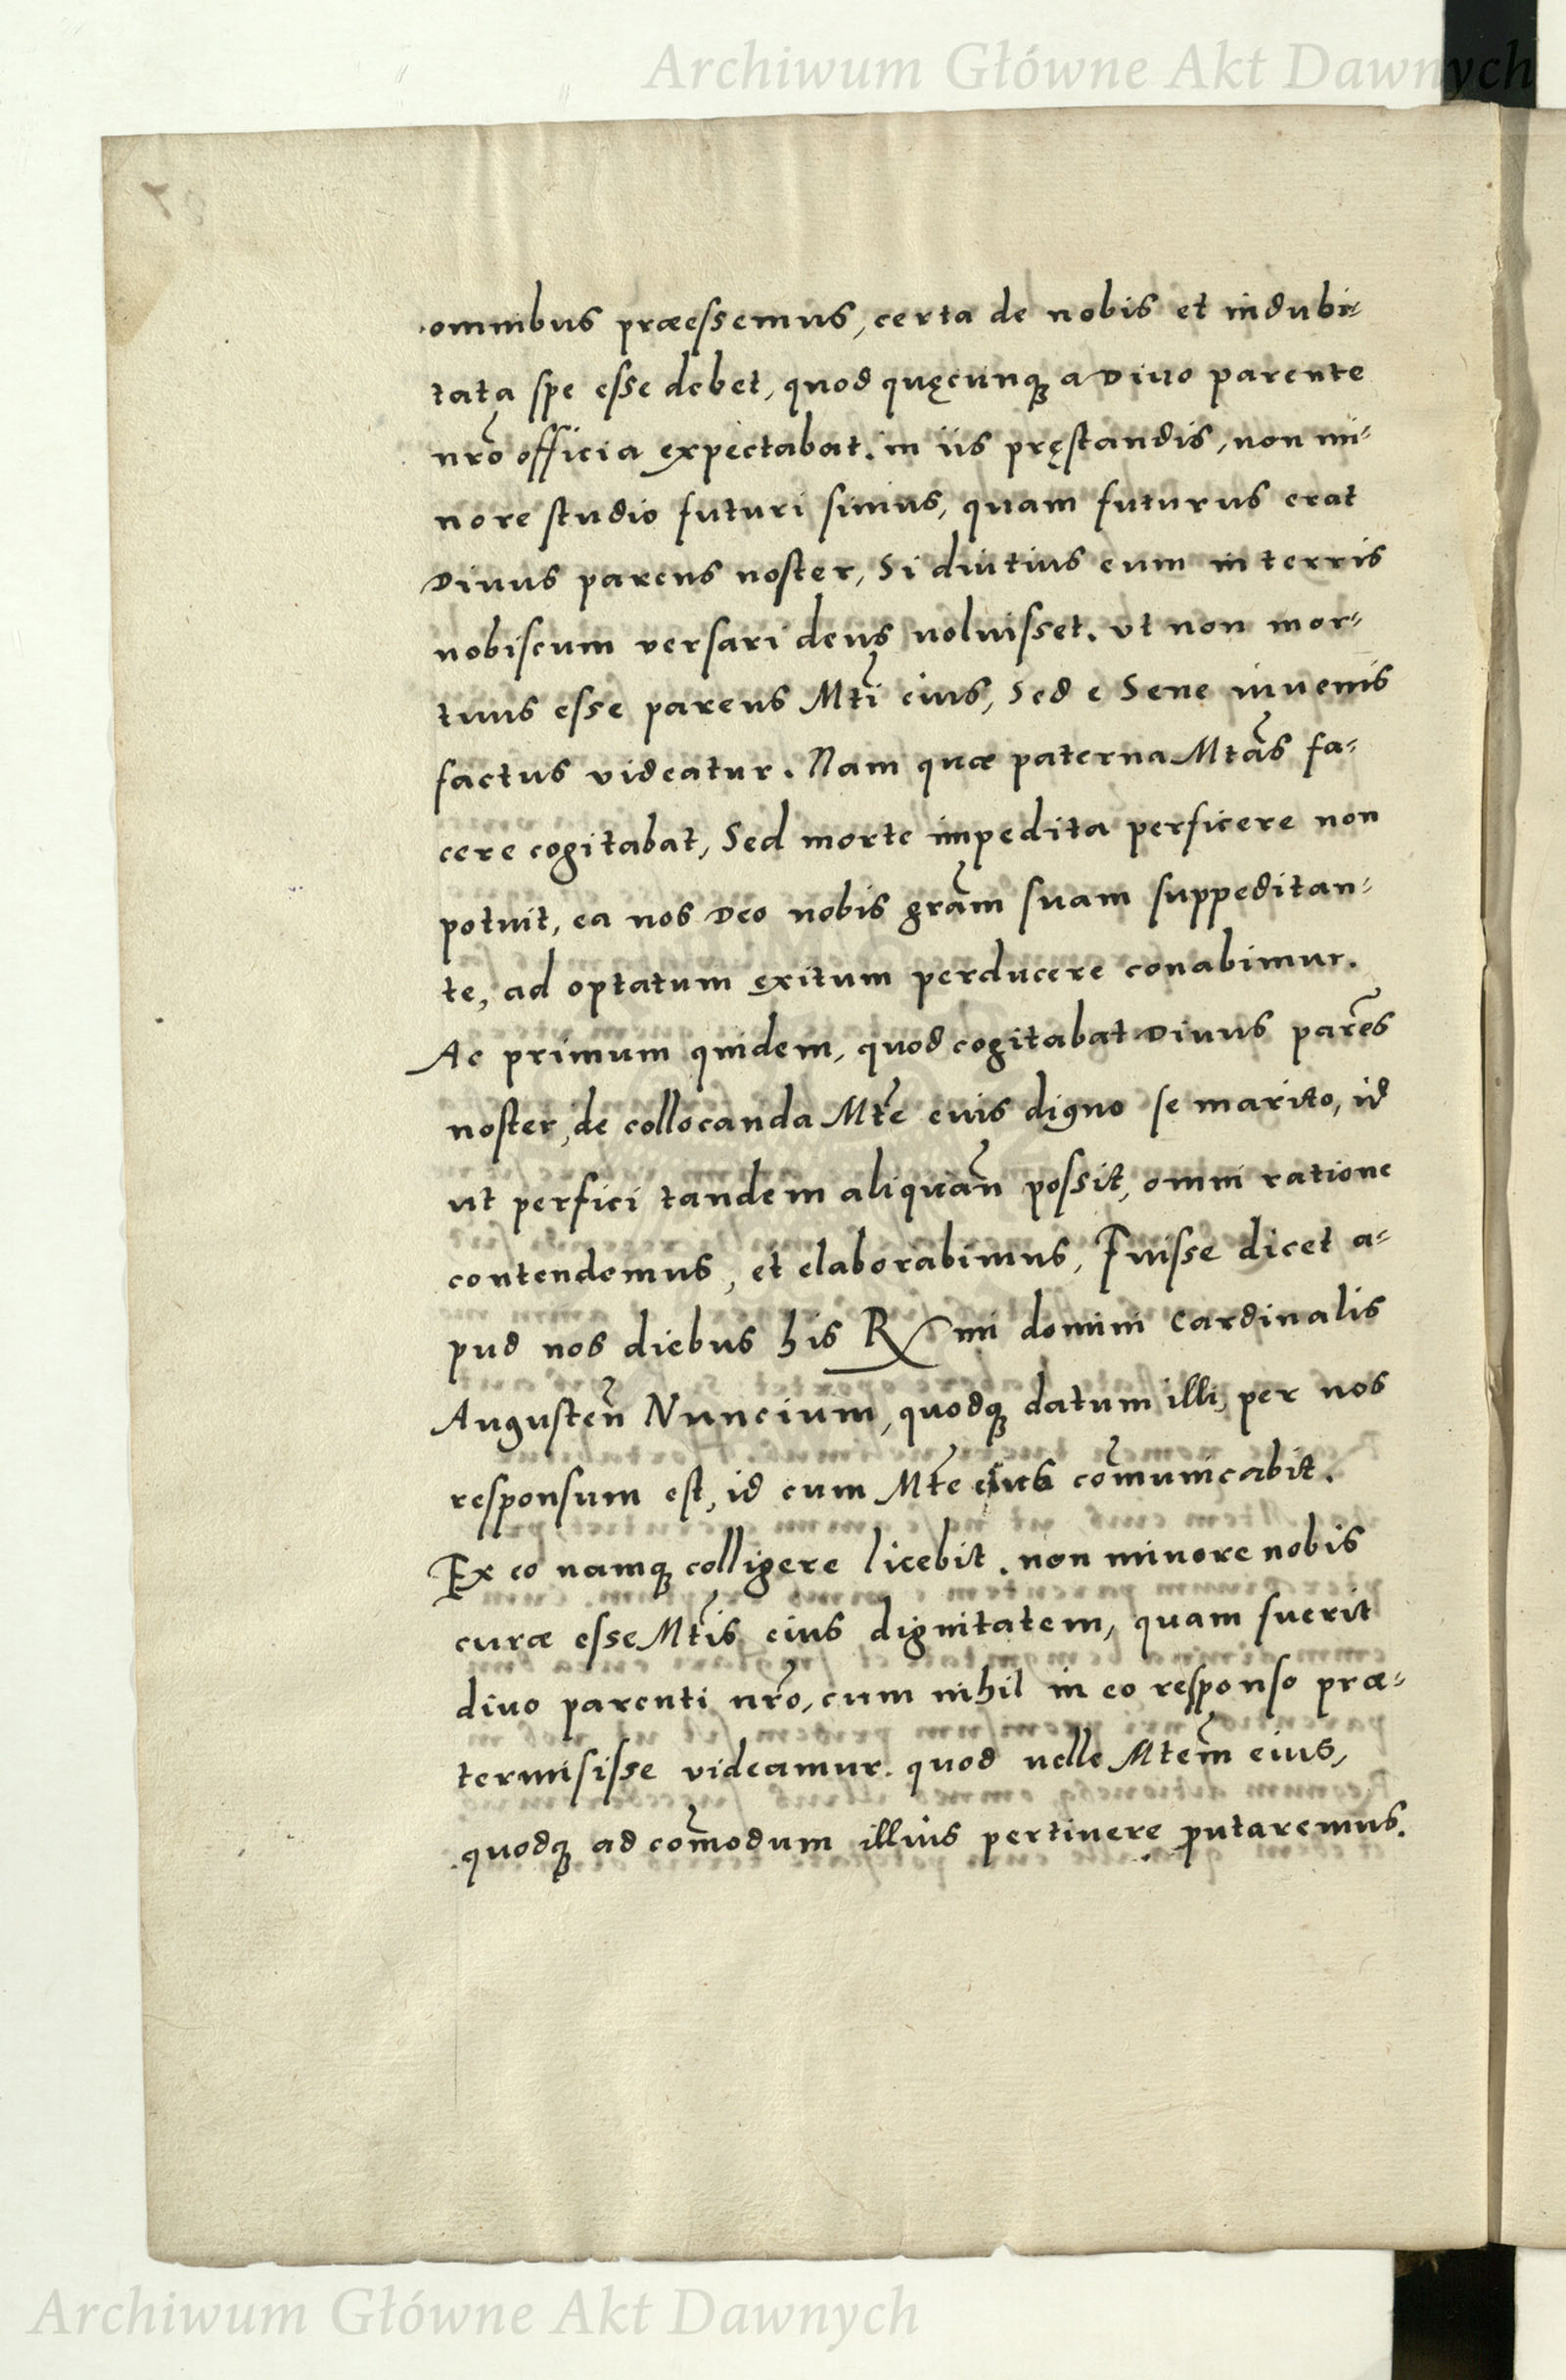 Archiwum Główne Akt Dawnych
omnibus præessemus, certa de nobis et indubi-
tata spe esse debet, quod quęcunq; a Diuo parente
nr̃o officia expectabat. in iis pręstandis, non mi-
nore studio futuri simus, quam futurus erat
Diuus parens noster, Si diutius eum in terris
nobiscum versari deus uoluisset. vt non mor-
tuus esse parens Mtĩ eius, Sed e Sene iuuenis
factus videatur. Nam quæ paterna Mtãs fa-
cere cogitabat, Sed morte impedita perficere non
potuit, ea nos Deo nobis grãm suam suppeditan-
te, ad optatum exitum perducere conabimur.
Ac primum quidem, quod cogitabat Diuus parẽs
noster, de collocanda Mtẽ euis digno se marito, id
ut perfici tandem aliquãn possit, omni ratione
contendemus, et elaborabimus, Fuisse dicet a-
pud nos diebus his R mi domini Cardinalis
Augusteñ Nuncium, quodq; datum illi, per nos
responsum est, id cum Mtẽ eius cõmunicabit.
Ex eo namq; colligere licebit. non minore nobis
curæ esse Mtĩs eius dignitatem, quam fuerit
diuo parenti nr̃o, cum nihil in eo responso præ-
termisisse videamur. quod uelle Mtẽm eius,
quodq; ad cõmodum illius pertinere putaremus.
Archiwum Główne Akt Dawnych